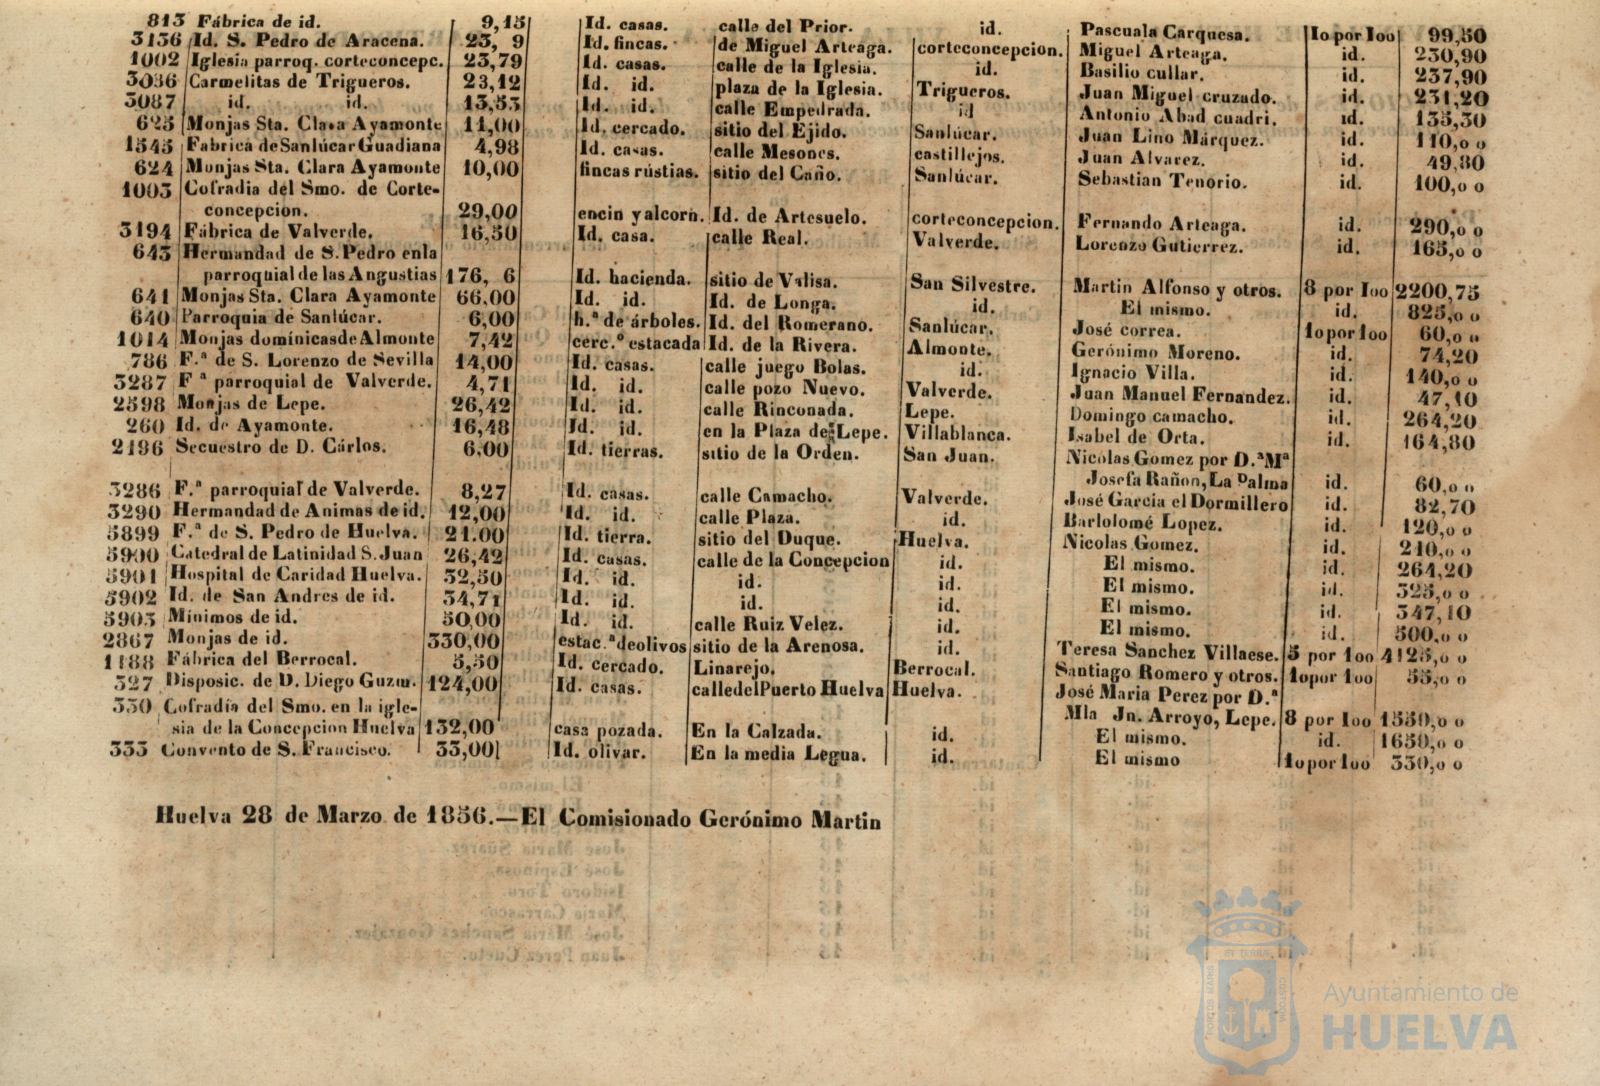 813 Fábrica de id. 9,15 Id. casas. calle del Prior. id. Pascuala Carquesa. 10 por 100 99,50
3136 Id. S. Pedro de Aracena. 23, 9 Id. fincas. de Miguel Arteaga. corteconcepcion. Miguel Arteaga. id. 230,90
1002 Iglesia parroq. corteconcepc. 23,79 Id. casas. calle de la Iglesia. id. Basilio cullar. id. 237,90
3086 Carmelitas de Trigueros. 23,12 Id. id. plaza de la Iglesia. Trigueros. Juan Miguel cruzado. id. 231,20
3087 id. id. 13,53 Id. id. calle Empedrada. id Antonio Abad cuadri. id. 135,30
625 Monjas Sta. Clara Ayamonte 11,00 Id. cercado. sitio del Ejido. Sanlúcar. Juan Lino Márquez. id. 110,o o
1545 Fabrica de Sanlúcar Guadiana 4,98 Id. casas. calle Mesones. castillejos. Juan Alvarez. id. 49,80
624 Monjas Sta. Clara Ayamonte 10,00 fincas rústias. sitio del Caño. Sanlúcar. Sebastian Tenorio. id. 100,o o
1003 Cofradia del Smo. de Corte-
concepcion. 29,00 encin y alcorn. Id. de Artesuelo. corteconcepcion. Fernando Arteaga. id. 290,o o
3194 Fábrica de Valverde. 16,50 Id. casa. calle Real. Valverde. Lorenzo Gutierrez. id. 165,o o
643 Hermandad de S. Pedro en la
parroquial de las Angustias 176, 6 Id. hacienda. sitio de Valisa. San Silvestre. Martin Alfonso y otros. 8 por 100 2200,75
641 Monjas Sta. Clara Ayamonte 66.00 Id. id. Id. de Longa. id. El mismo. id. 825,o o
640 Parroquia de Sanlúcar. 6,00 h.ª de árboles. Id. del Romerano. Sanlúcar. José correa. 10 por 100 60,o o
1014 Monjas dominicas de Almonte 7,42 cerc.º estacada Id. de la Rivera. Almonte. Gerónimo Moreno. id. 74,20
786 F.ª de S. Lorenzo de Sevilla 14,00 Id. casas. calle juego Bolas. id. Ignacio Villa. id. 140,o o
3287 F ª parroquial de Valverde. 4,71 Id. id. calle pozo Nuevo. Valverde. Juan Manuel Fernandez. id. 47,10
2598 Monjas de Lepe. 26,42 Id. id. calle Rinconada. Lepe. Domingo camacho. id. 264,20
260 Id. de Ayamonte. 16,48 Id. id. en la Plaza de Lepe. Villablanca. Isabel de Orta. id. 164,80
2196 Secuestro de D. Cárlos. 6,00 Id. tierras. sitio de la Orden. San Juan. Nicolas Gomez por D.ª Mª
Josefa Rañon, La Palma id. 60,o o
3286 F.ª parroquial de Valverde. 8,27 Id. casas. calle Camacho. Valverde. José Garcia el Dormillero id. 82,70
3290 Hermandad de Animas de id. 12,00 Id. id. calle Plaza. id. Bartolomé Lopez. id. 120,o o
5899 F.ª de S. Pedro de Huelva. 21.00 Id. tierra. sitio del Duque. Huelva. Nicolas Gomez. id. 210,o o
5900 Catedral de Latinidad S. Juan 26,42 Id. casas. calle de la Concepcion id. El mismo. id. 264,20
5901 Hospital de Caridad Huelva. 32,50 Id. id. id. id. El mismo. id. 325,o o
5902 Id. de San Andres de id. 34,71 Id. id. id. id. El mismo. id. 347,10
5903 Minimos de id. 50,00 Id. id. calle Ruiz Velez. id. El mismo. id. 500,o o
2867 Monjas de id. 330,00 estac.ª de olivos sitio de la Arenosa. id. Teresa Sanchez Villaese. 5 por 100 4125,o o
1188 Fábrica del Berrocal. 5,50 Id. cercado. Linarejo. Berrocal. Santiago Romero y otros. 10 por 100 55,o o
327 Disposic. de D. Diego Guzm. 124,00 Id. casas. calle del Puerto Huelva Huelva. José Maria Perez por D.ª
330 Cofradía del Smo. en la igle- Mla Jn. Arroyo, Lepe. 8 por 100 1550,o o
sia de la Concepcion Huelva 132,00 casa pozada. En la Calzada. id. El mismo. id. 1650,o o
333 Convento de S. Francisco. 33,00 Id. olivar. En la media Legua. id. El mismo 10 por 100 330,o o
Huelva 28 de Marzo de 1856.—El Comisionado Gerónimo Martin
Ayuntamiento de
HUELVA